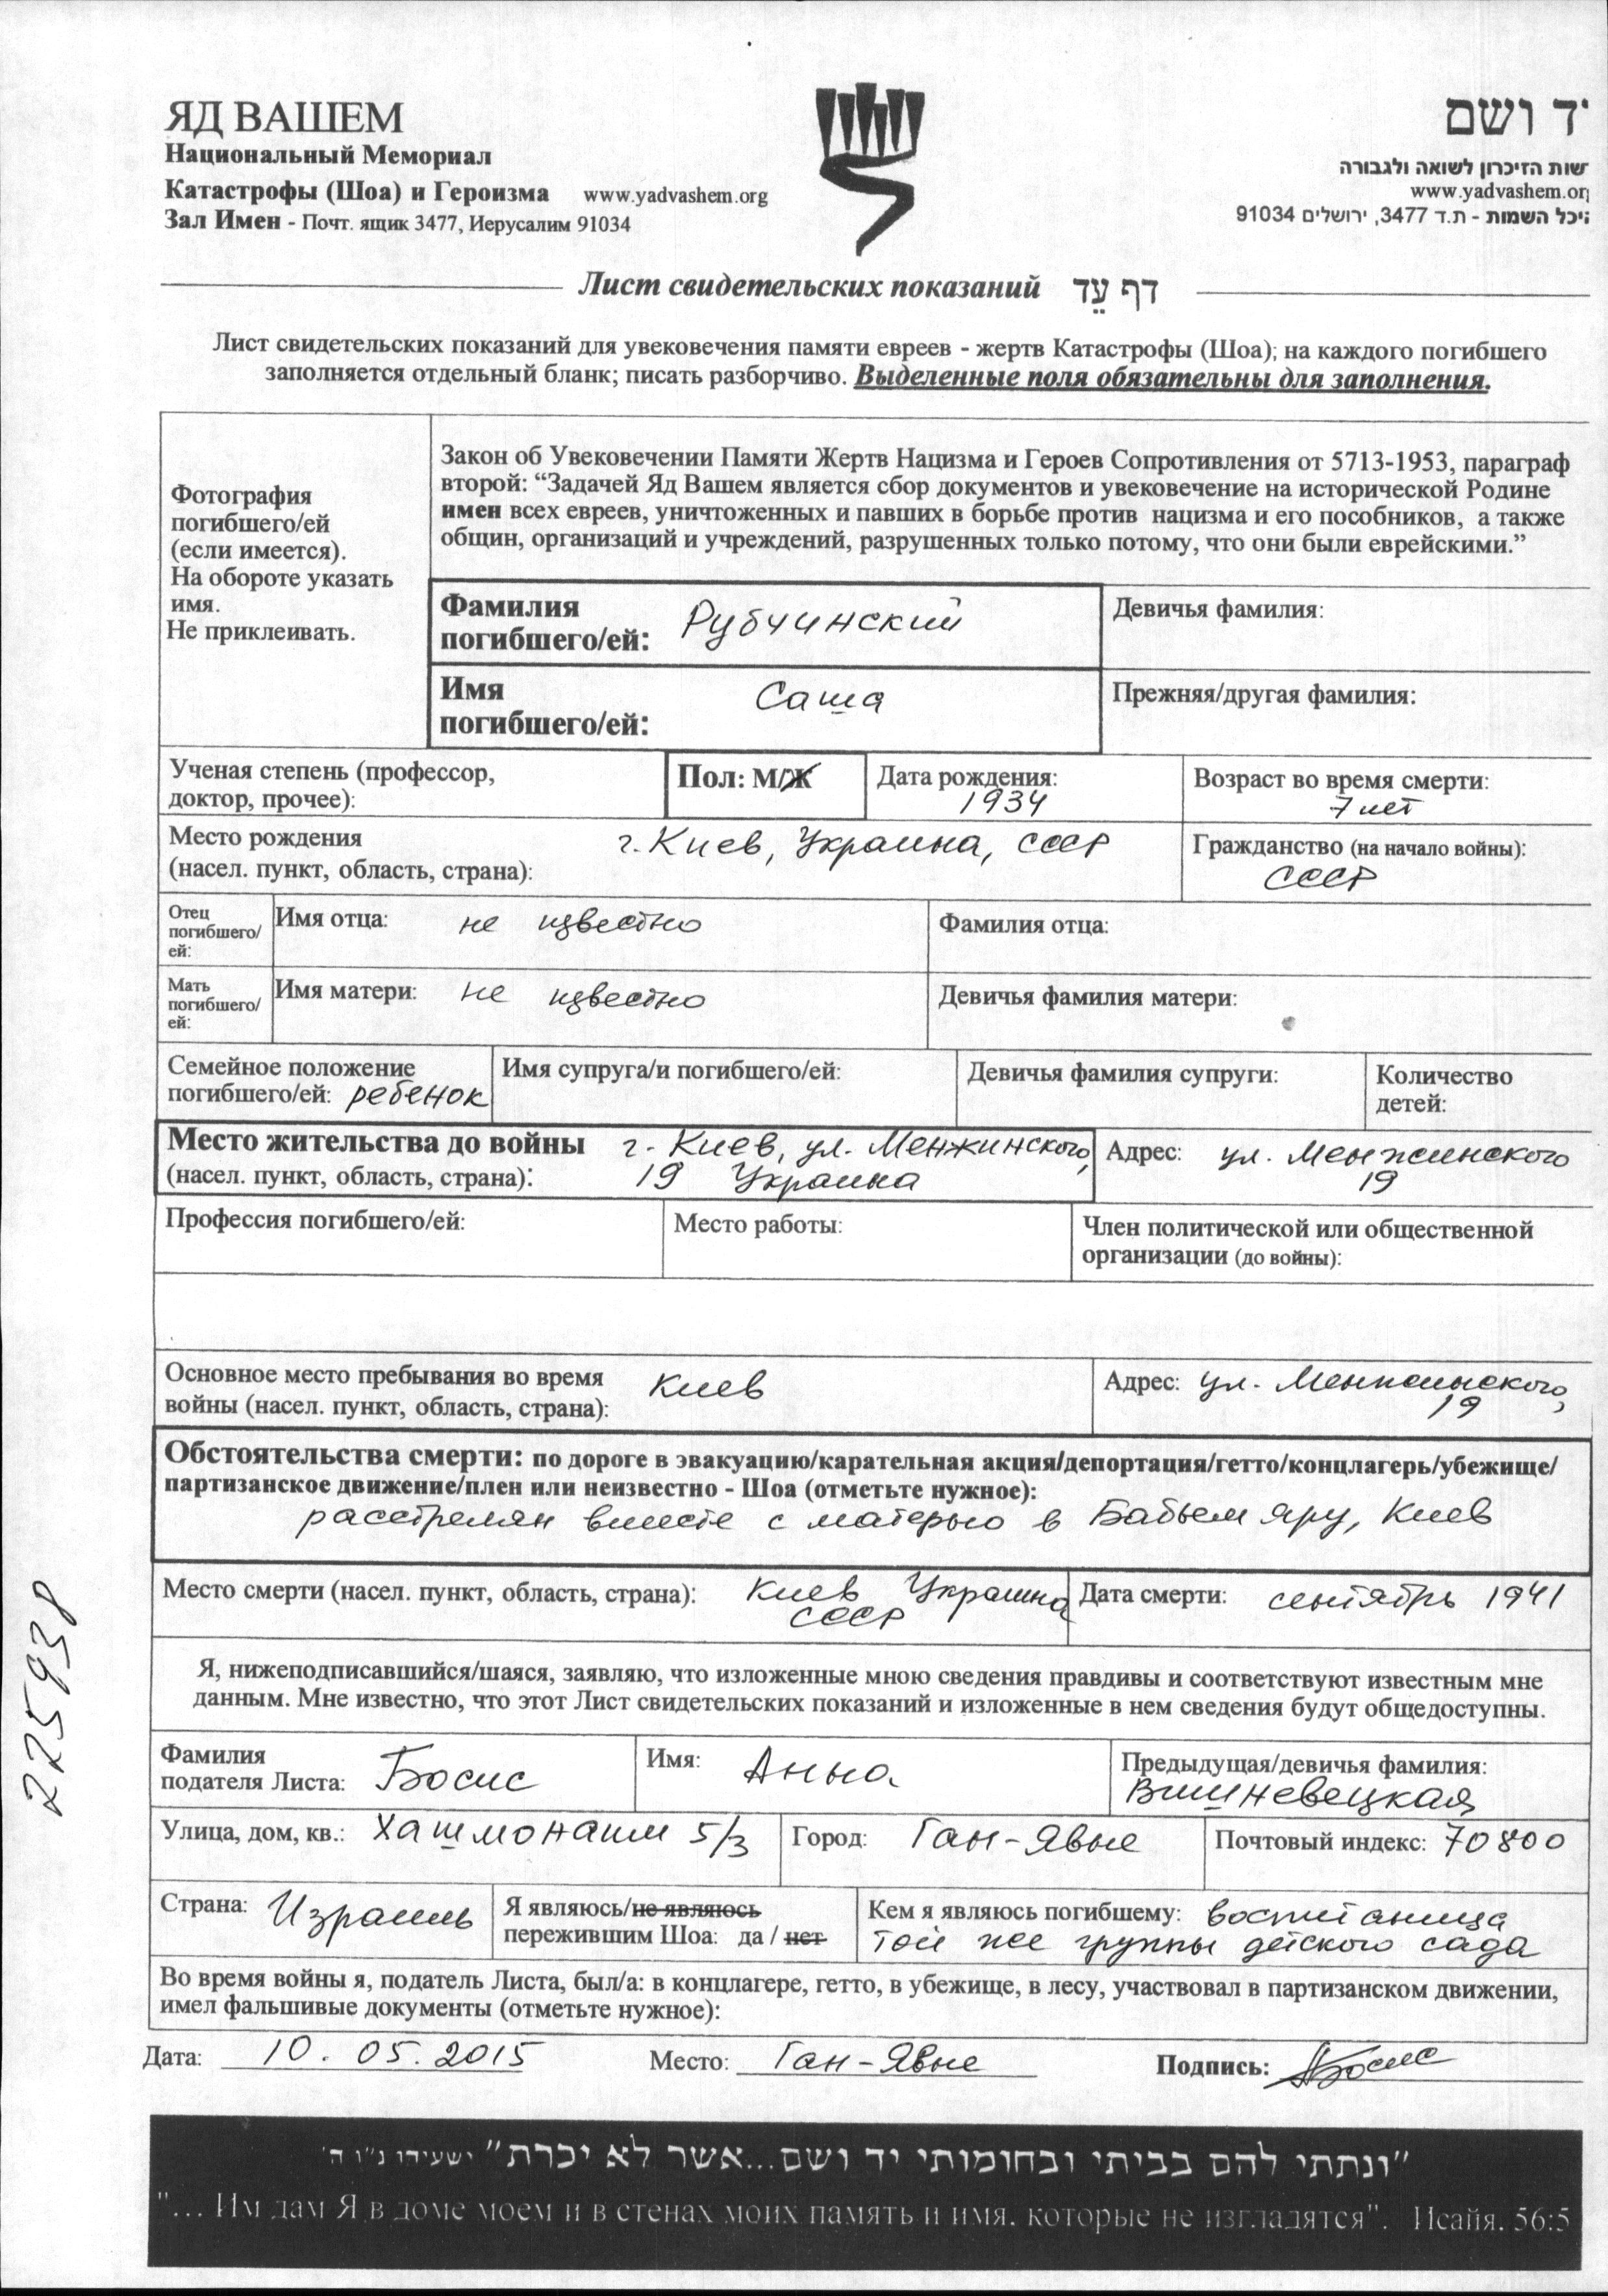 ЯД ВАШЕМ
Национальный Мемориал
Катастрофы (Шоа) и Героизма www.yadvashem.org
Зал Имен - Почт. ящик 3477, Иерусалим 91034
יד ושם
שות הזיכרון לשואה ולגבורה
www.yadvashem.or
יכל השמות - ת.ד 3477, ירושלים 91034
Лист свидетельских показаний דף עֵד
Лист свидетельских показаний для увековечения памяти евреев - жертв Катастрофы (Шоа); на каждого погибшего
заполняется отдельный бланк; писать разборчиво. Выделенные поля обязательны для заполнения.
Фотография
погибшего/ей
(если имеется).
На обороте указать
имя.
Не приклеивать.
Закон об Увековечении Памяти Жертв Нацизма и Героев Сопротивления от 5713-1953, параграф
второй: “Задачей Яд Вашем является сбор документов и увековечение на исторической Родине
имен всех евреев, уничтоженных и павших в борьбе против нацизма и его пособников, а также
общин, организаций и учреждений, разрушенных только потому, что они были еврейскими.”
Фамилия
погибшего/ей: Рубчинский
Девичья фамилия:
Имя
погибшего/ей: Саша
Прежняя/другая фамилия:
Ученая степень (профессор,
доктор, прочее):
Пол: М/Ж
Дата рождения:
1934
Возраст во время смерти:
7 лет
Место рождения
(насел. пункт, область, страна): г. Киев, Украина, СССР
Гражданство (на начало войны):
СССР
Отец
погибшего/
ей:
Имя отца: не известно
Фамилия отца:
Мать
погибшего/
ей:
Имя матери: не известно
Девичья фамилия матери:
Семейное положение
погибшего/ей: ребенок
Имя супруга/и погибшего/ей:
Девичья фамилия супруги:
Количество
детей:
Место жительства до войны г. Киев, ул. Менжинского,
(насел. пункт, область, страна): 19 Украина
Адрес: ул. Менжинского
19
Профессия погибшего/ей:
Место работы:
Член политической или общественной
организации (до войны):
Основное место пребывания во время
войны (насел. пункт, область, страна): Киев
Адрес: ул. Менжинского,
19
Обстоятельства смерти: по дороге в эвакуацию/карательная акция/депортация/гетто/концлагерь/убежище/
партизанское движение/плен или неизвестно - Шоа (отметьте нужное):
расстрелян вместе с матерью в Бабьем яру, Киев
Место смерти (насел. пункт, область, страна): Киев Украина
СССР
Дата смерти: сентябрь 1941
Я, нижеподписавшийся/шаяся, заявляю, что изложенные мною сведения правдивы и соответствуют известным мне
данным. Мне известно, что этот Лист свидетельских показаний и изложенные в нем сведения будут общедоступны.
Фамилия
подателя Листа: Босис
Имя: Анна
Предыдущая/девичья фамилия:
Вишневецкая
Улица, дом, кв.: Хашмонаим 5/3
Город: Ган-Явне
Почтовый индекс: 70800
Страна: Израиль
Я являюсь/не являюсь
пережившим Шоа: да / нет
Кем я являюсь погибшему: воспитаница
той же группы детского сада
Во время войны я, податель Листа, был/а: в концлагере, гетто, в убежище, в лесу, участвовал в партизанском движении,
имел фальшивые документы (отметьте нужное):
Дата: 10.05.2015 Место: Ган-Явне Подпись: АБосис
"ונתתי להם בביתי ובחומותי יד ושם...אשר לא יכרת" ישעיהו נ"ו ה'
"... Им дам Я в доме моем и в стенах моих память и имя, которые не изгладятся". Исайя. 56:5
225938